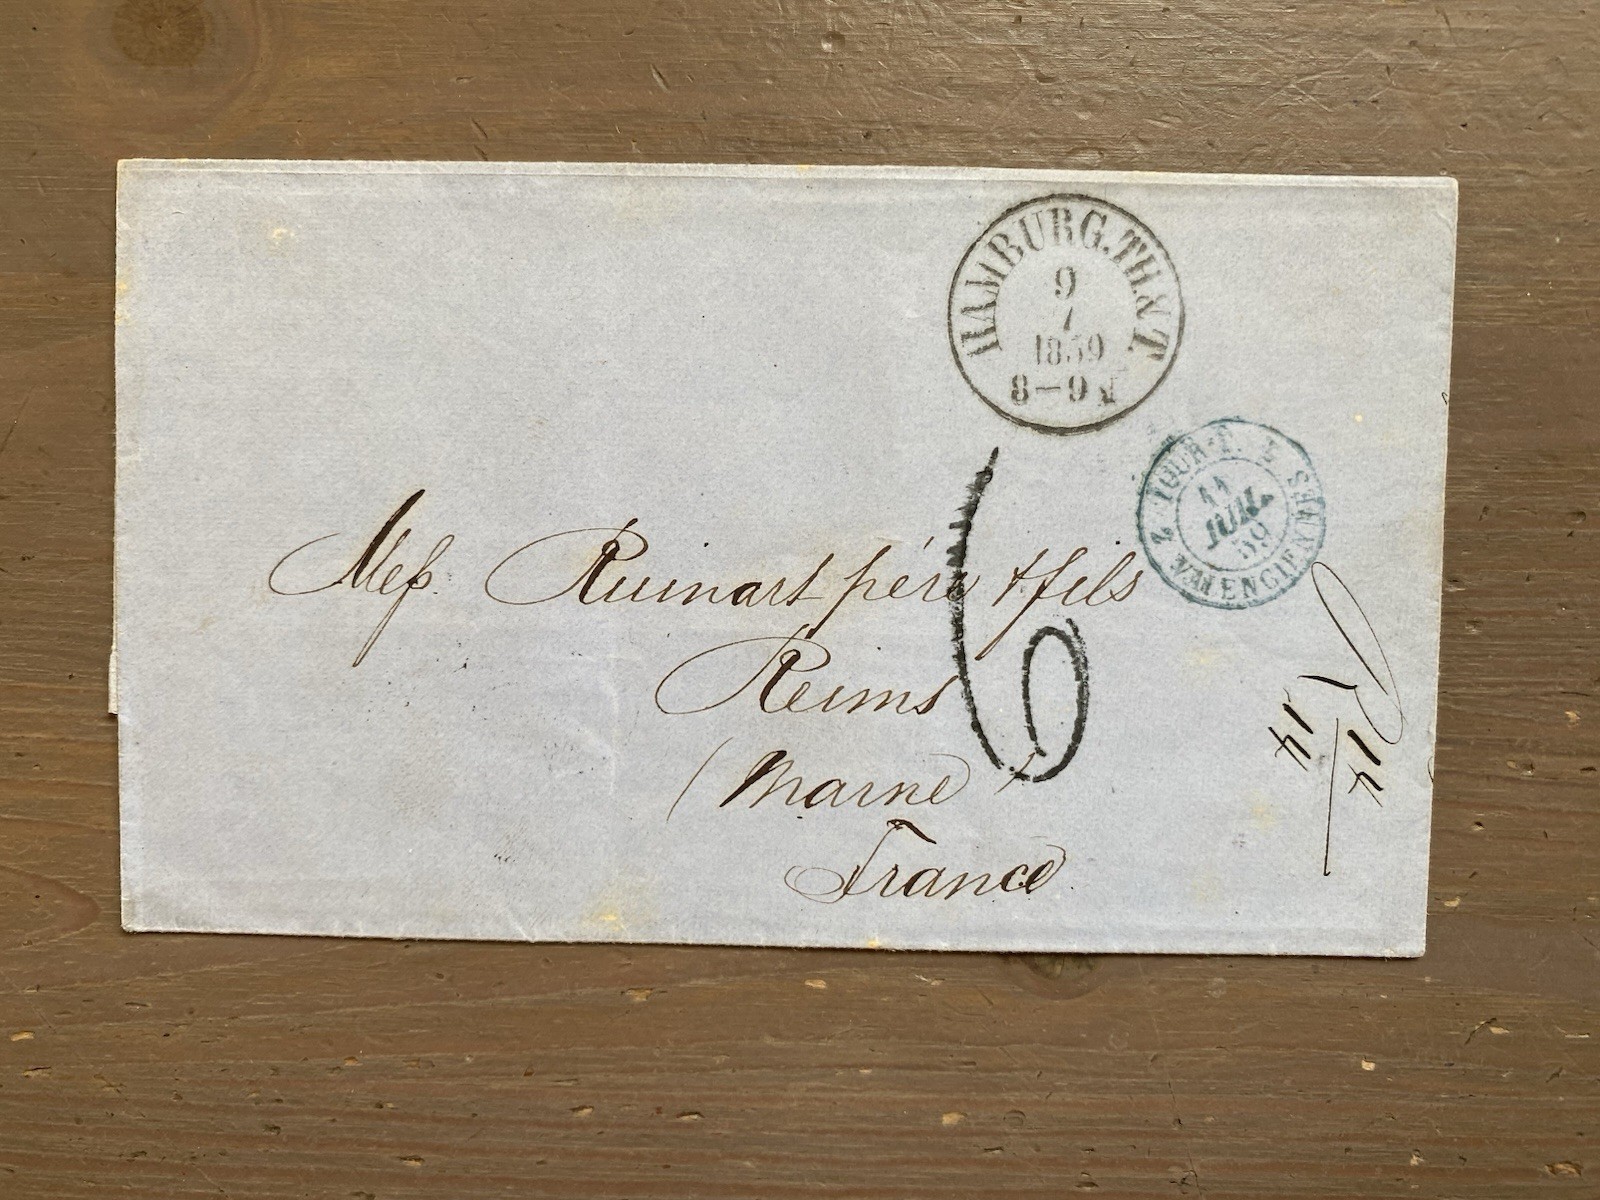 HAMBURG. TH. & T.
9
7
1859
8–9
TOUR-T.
11
JUIL.
59
VALENCIENNES
6
Mess. Ruinart père & fils
Reims
(Marne)
France